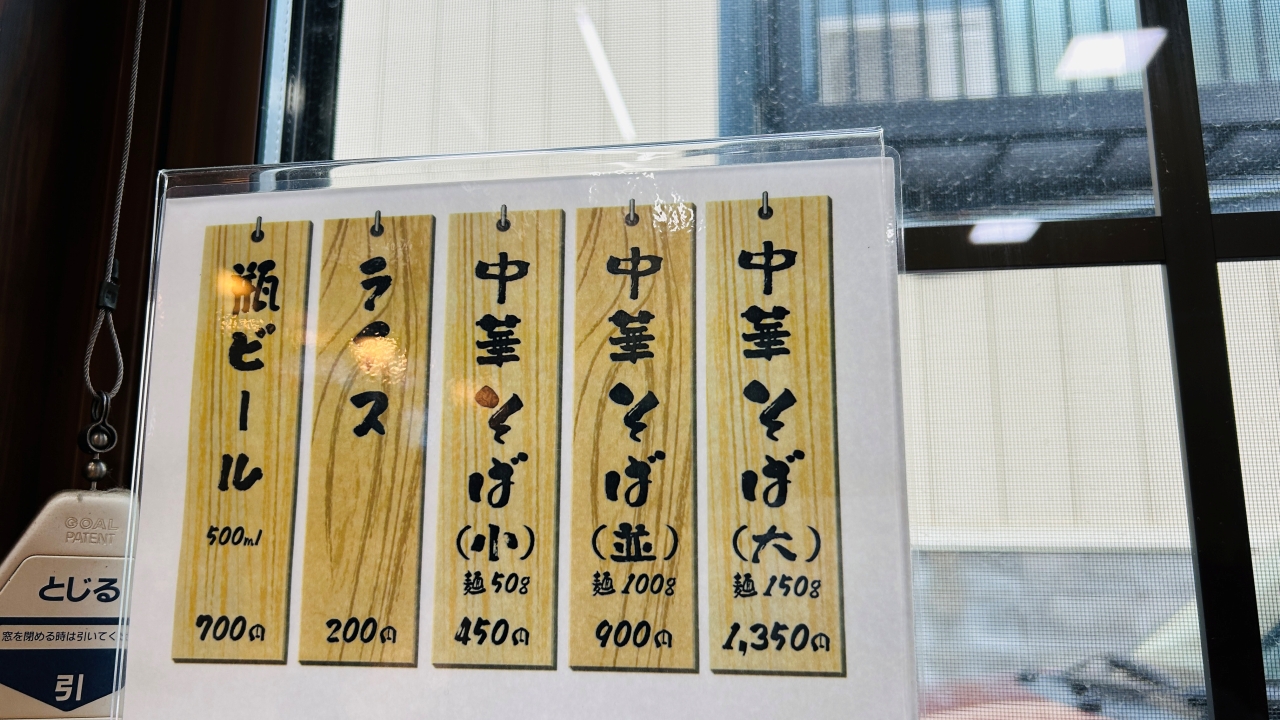 中華そば
(大)
麺150g
1,350円
中華そば
(並)
麺100g
900円
中華そば
(小)
麺50g
450円
ライス
200円
瓶ビール
500ml
700円
GOAL
PATENT
とじる
窓を閉める時は引いてく
引